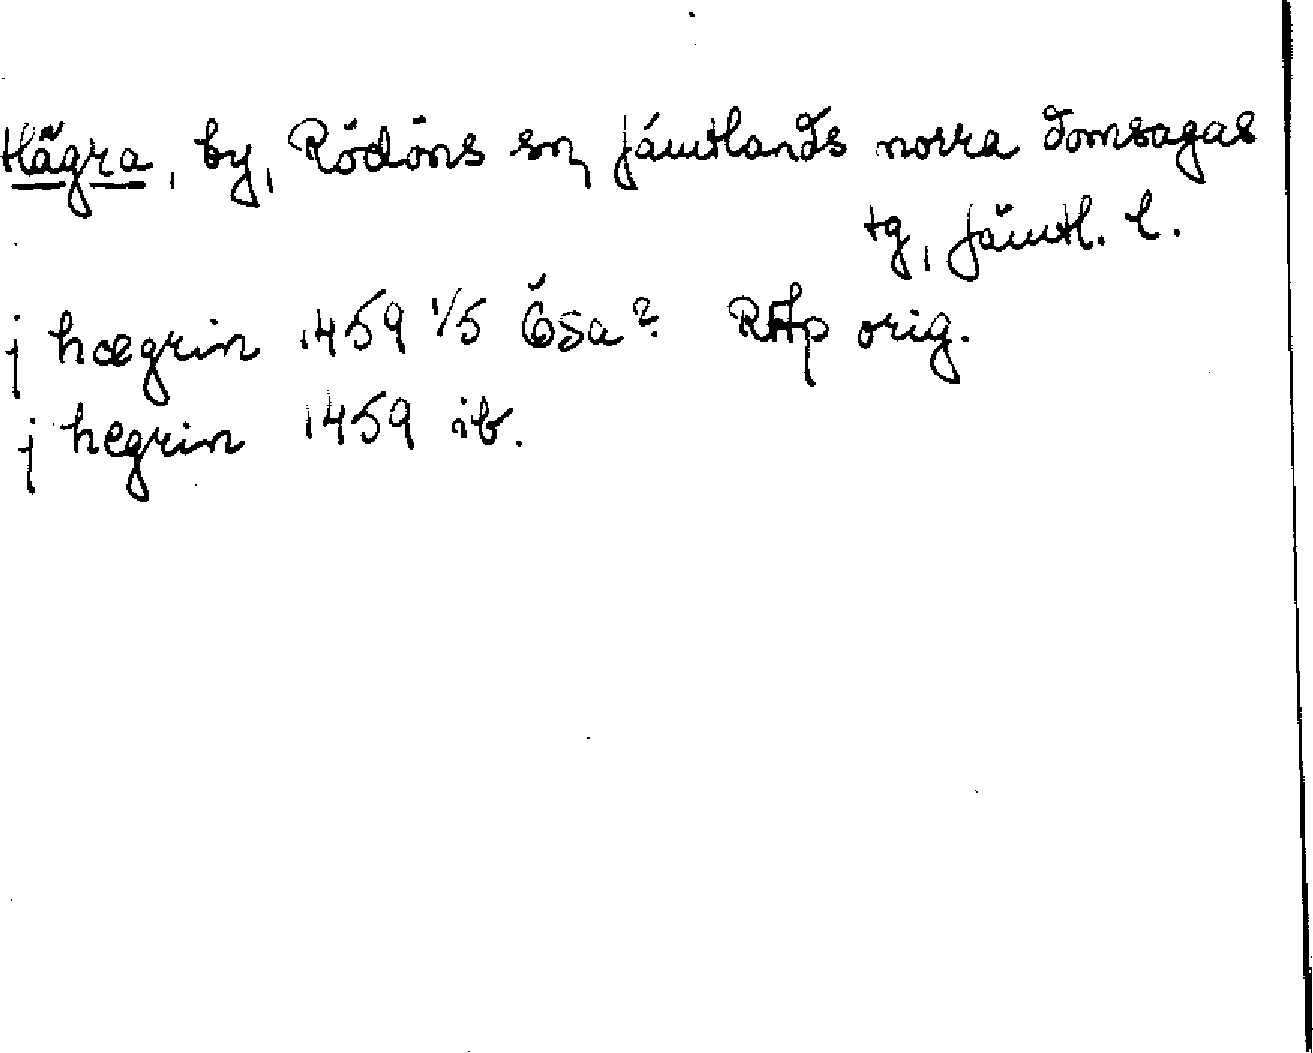 Hägra, by, Rödöns sn, Jämtlands norra domsagas
tg, Jämtl. l.
j hægrin 1459 1/5 Ösa? RAp orig.
j hegrin 1459 ib.